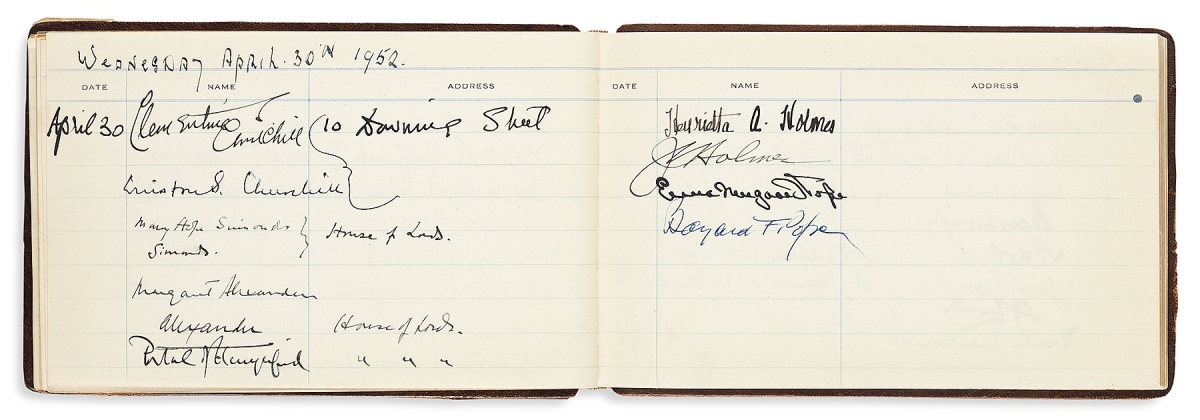 WEDNESDAY APRIL 30TH 1952.
DATE NAME ADDRESS
April 30 Clementine Churchill 10 Downing Street
Winston S. Churchill
Mary Hope Simonds House of Lords.
Simonds.
Margaret Alexander
Alexander House of Lords.
Portal of Hungerford " " "
DATE NAME ADDRESS
Henrietta A. Holmes
Holmes
Margaret Pope
Bayard F Pope